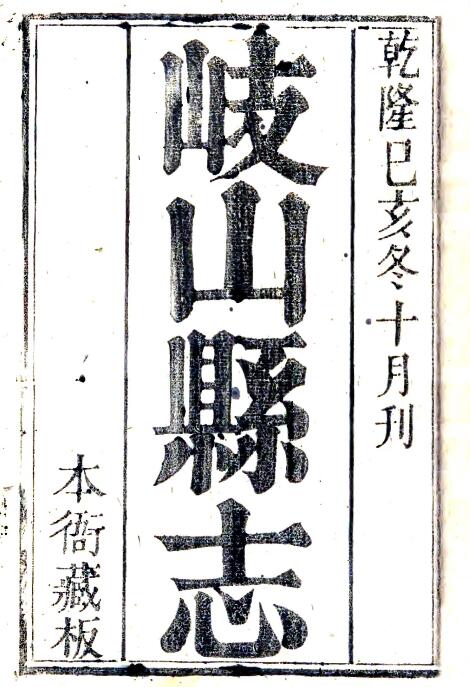 乾隆己亥冬十月刊
岐山縣志
本衙藏板